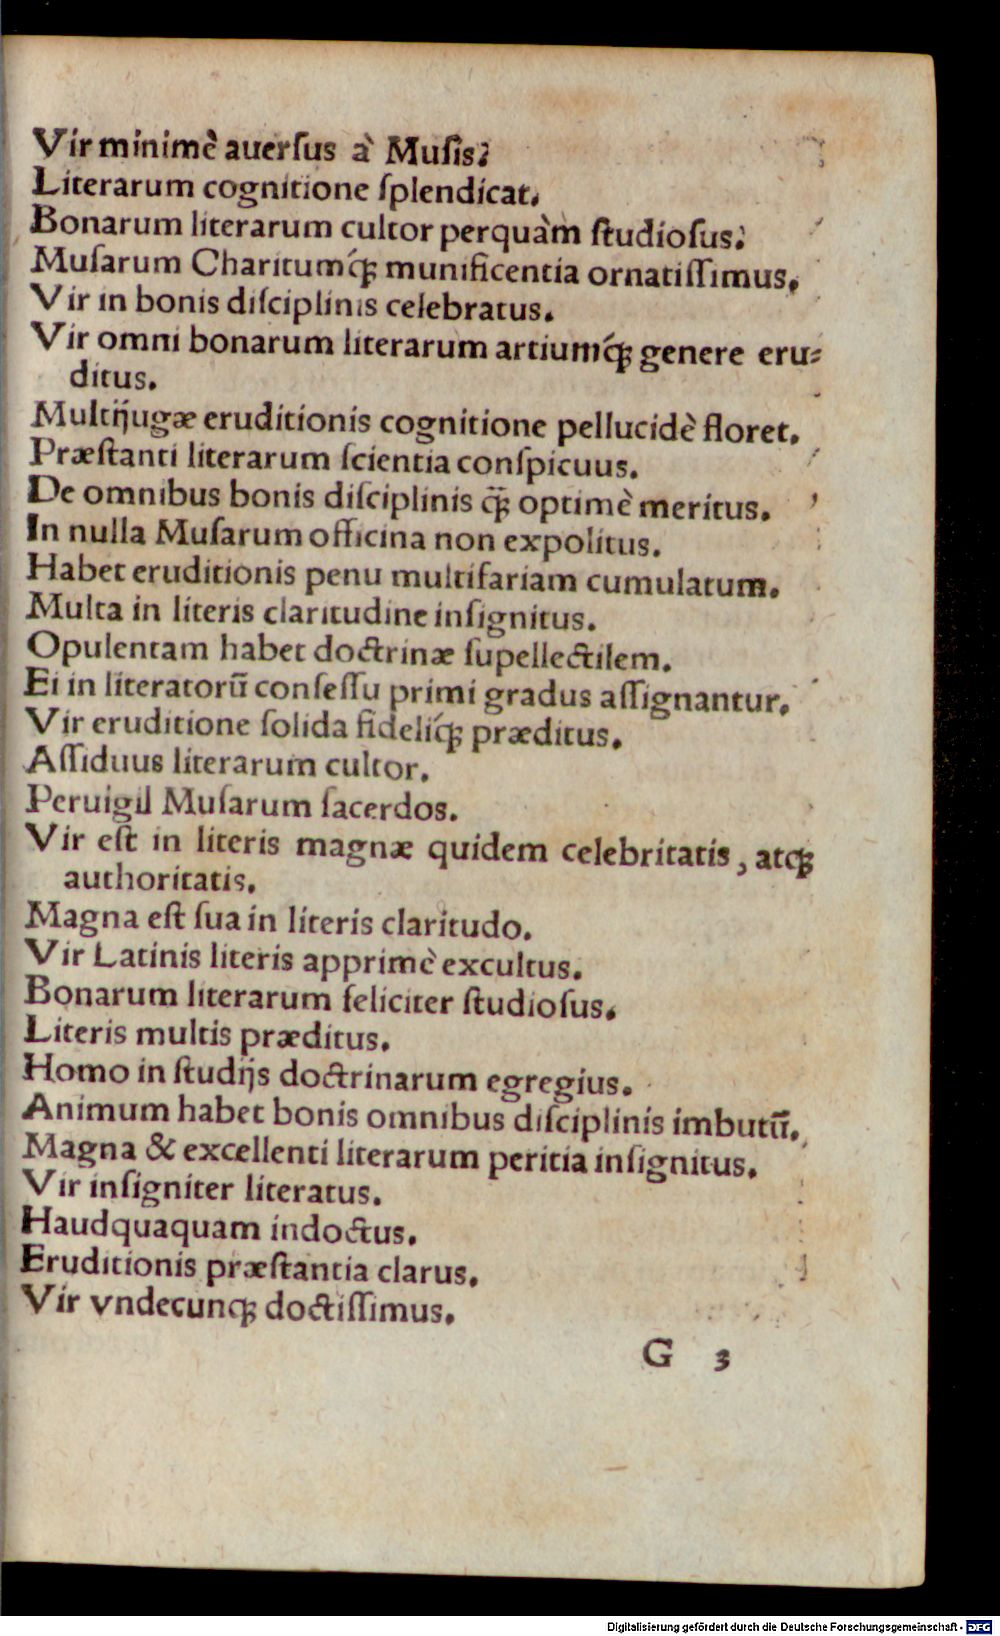 Vir minimè auersus à Musis.
Literarum cognitione splendicat.
Bonarum literarum cultor perquàm studiosus.
Musarum Charitumq́; munificentia ornatissimus.
Vir in bonis disciplinis celebratus.
Vir omni bonarum literarum artiumq́; genere eru-
ditus.
Multijugæ eruditionis cognitione pellucidè floret.
Præstanti literarum scientia conspicuus.
De omnibus bonis disciplinis q̃; optimè meritus.
In nulla Musarum officina non expolitus.
Habet eruditionis penu multifariam cumulatum.
Multa in literis claritudine insignitus.
Opulentam habet doctrinæ supellectilem.
Ei in literatorū consessu primi gradus assignantur.
Vir eruditione solida fideliq́; præditus.
Assiduus literarum cultor.
Peruigil Musarum sacerdos.
Vir est in literis magnæ quidem celebritatis, atq;
authoritatis.
Magna est sua in literis claritudo.
Vir Latinis literis apprimè excultus.
Bonarum literarum feliciter studiosus.
Literis multis præditus.
Homo in studijs doctrinarum egregius.
Animum habet bonis omnibus disciplinis imbutū.
Magna & excellenti literarum peritia insignitus.
Vir insigniter literatus.
Haudquaquam indoctus.
Eruditionis præstantia clarus.
Vir vndecunq; doctissimus.
G 3
Digitalisierung gefördert durch die Deutsche Forschungsgemeinschaft - DFG